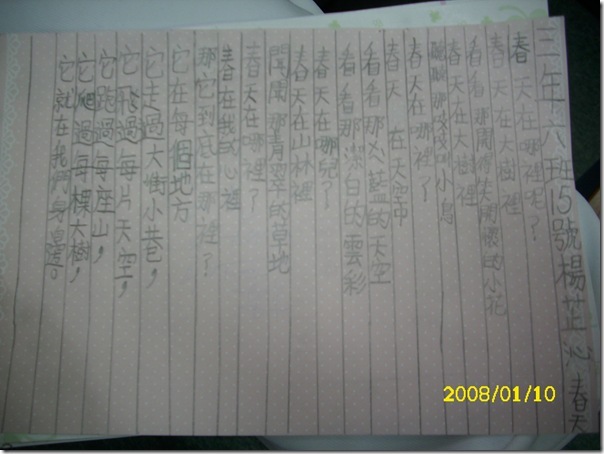 三年六班15號楊芷沁 春天
春天在哪裡呢?
春天在大樹裡
看看那開得笑開眼的小花
春天在大樹裡
聽聽那吱吱叫小鳥
春天在哪裡?
春天 在天空中
看看那炎藍的天空
看看那潔白的雲彩
春天在哪兒?
春天在山林裡
聞聞那青翠的草地
春天在哪裡?
春在我的心裡
那它到底在那裡?
它在每個地方
它走過大街小巷,
它飛過每片天空,
它跑過每座山,
它爬過每棵大樹,
它就在我們身邊。
2008/01/10